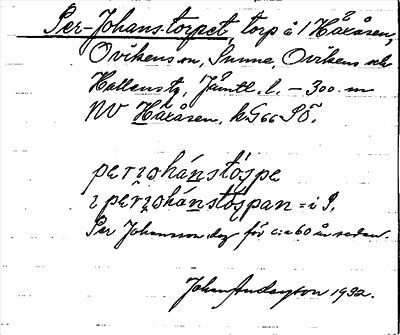 Per-Johans-torpet, torp å 1 Håxåsen,
Ovikens sn, Sunne, Ovikens och
Hallens tg, Jämtl. l. – 300 m
NV Håxåsen, k. G66 SÖ.
perjohánstóspe
i perjohánstóspan = i P.
Per Johansson dog för c:a 60 år sedan.
Johan Anderson 1932.